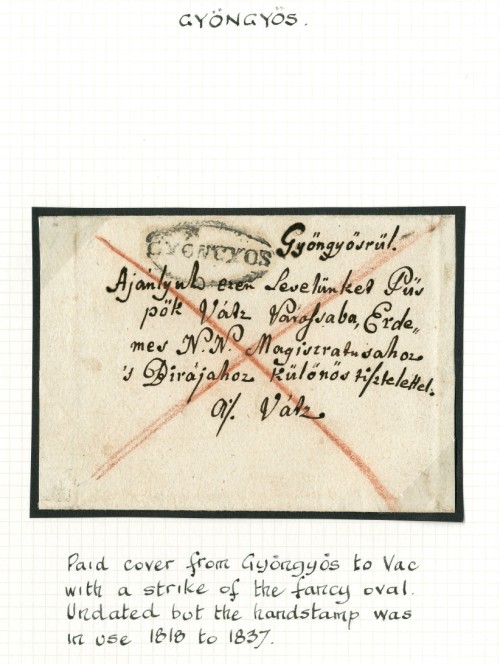 GYÖNGYÖS.
GYÖNGYÖS
Gyöngyösrűl.
Ajánlyuk ezen Levelünket Püs
pök Vátz Várossaba, Erde„
mes N. N. Magistratusahoz
's Birájahoz különös tisztelettel.
a/. Vátz
Paid cover from Gyöngyös to Vac
with a strike of the fancy oval.
Undated but the handstamp was
in use 1818 to 1837.